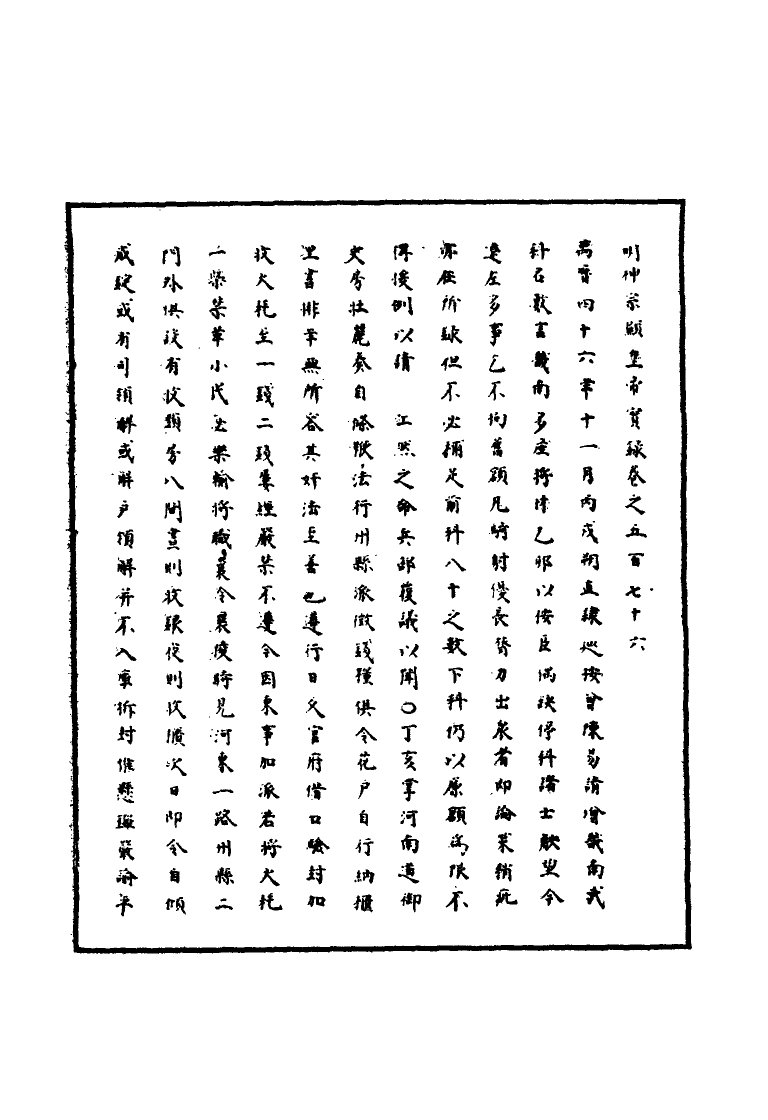 明神宗顯皇帝實錄卷之五百七十六
萬曆四十六年十一月丙戌朔直隸巡按曾陳易請增畿南武
科名數言畿南多產將律乙卯以按臣馮缺停科諸士觖望今
遼左多事乞不拘舊額凡騎射優長膂力出衆者即論策稍疵
亦在所錄但不必補足前科八十之數下科仍以原額為限不
得援例以請 江照之命兵部覆議以聞○丁亥掌河南道御
史房壯麗奏自條鞭法行州縣派徵錢糧俱令花戶自行納櫃
里書排年無所容其奸法至善也遵行日久官府借口驗封加
收火耗至一錢二錢屢經嚴禁不遵今因東事加派若將火耗
一槩禁革小民必樂輸將職襄令襄陵時見河東一路州縣二
門外俱設有收頭房八間晝則收銀夜則收櫃次日即令自傾
成錠或有司領解或解戶領解并不入庫拆封催懸璽嚴諭平